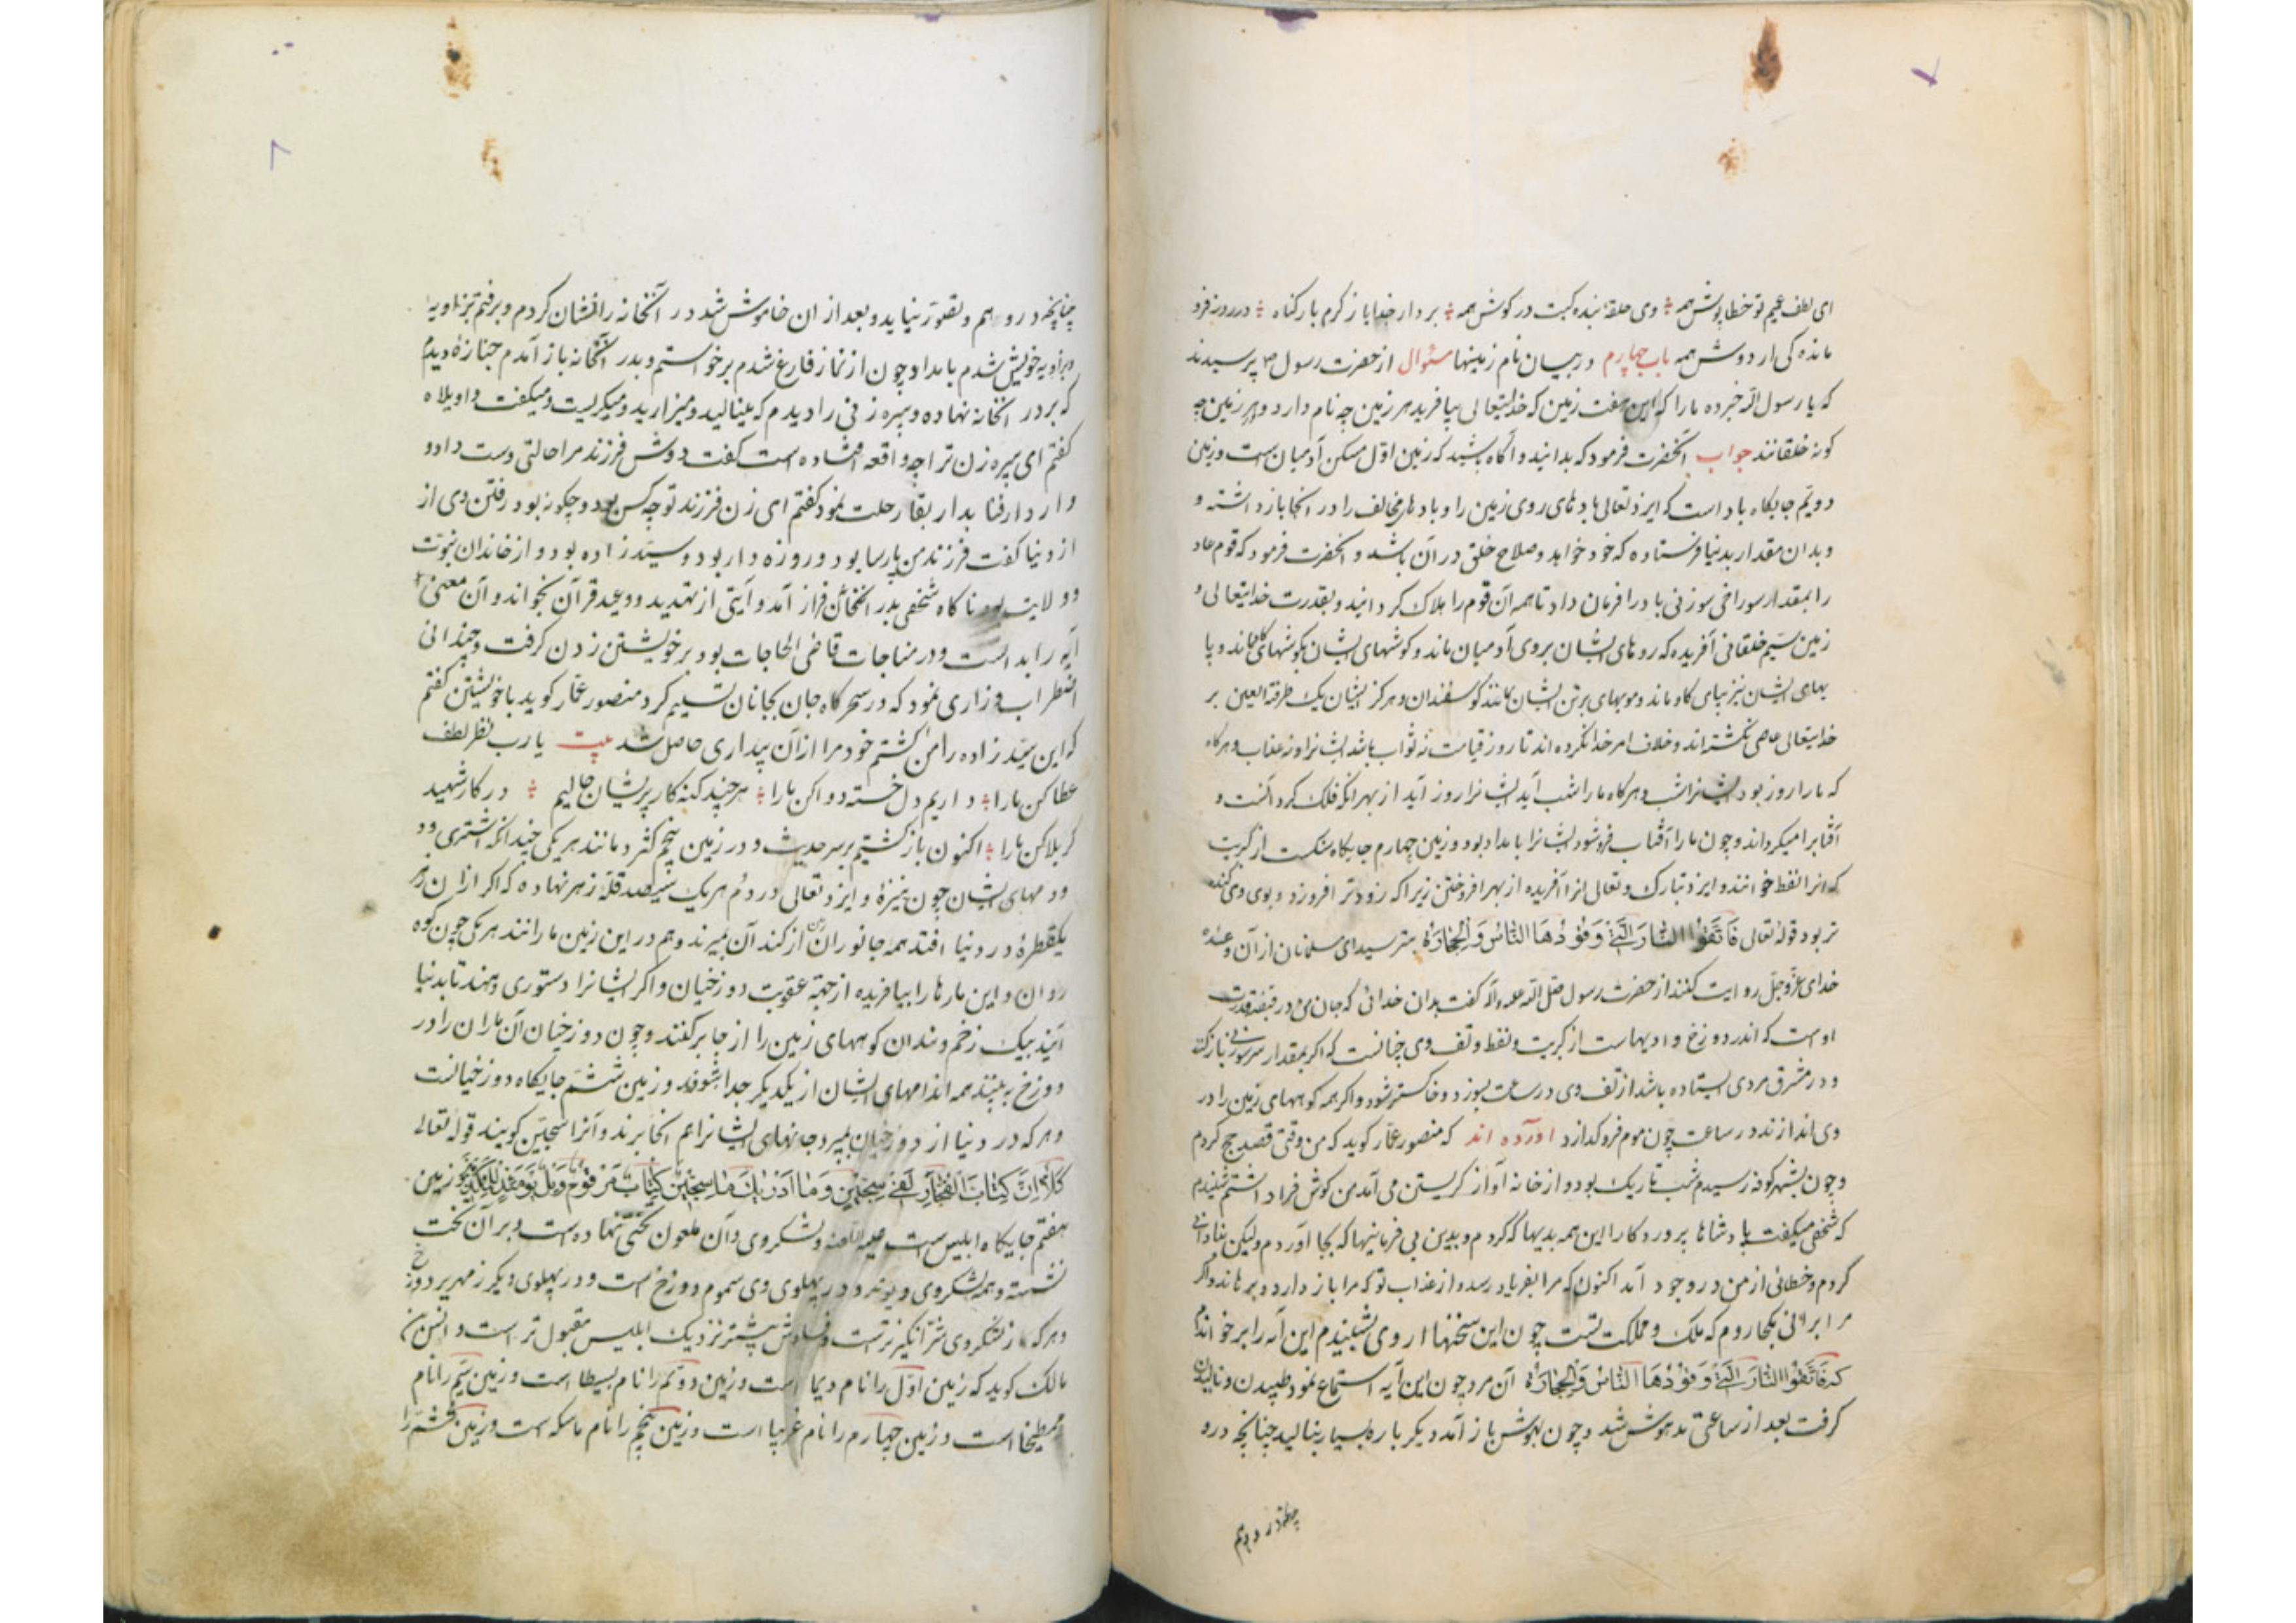 ای لطف عمیم تو خطاپوش همه ؞ وی حلقهٔ بنده کیت در کوش همه ؞ بردار خدایا ز کرم بار کناه ؞ در روز فرو
مانده کی از دوش همه باب چهارم در بیان نام زمینها سئوال از حضرت رسول ص پرسیدند
که یا رسول الله خبر ده ما را که این هفت زمین که خدایتعالی بیافرید هر زمین چه نام دارد و هر زمین چه
کونه خلقانند جواب آنحضرت فرمود که بدانید و آکاه باشید که زمین اوّل مسکن آدمیان است و زمین
دویّم جایکاه باد است که ایزد تعالی بادهای روی زمین را و بادهای مخالف را در آنجا بازداشته و
و بدان مقدار بدنیا فرستاده که خود خواهد و صلاح خلق در آن باشد و آنحضرت فرمود که قوم عاد
را بمقدار سوراخی سوزنی باد را فرمان داد تا همه آن قوم را هلاک کردانید و بقدرت خدایتعالی و
زمین سیّم خلقانی آفریده که روهای ایشان بروی آدمیان ماند و کوشهای ایشان بکوشهای کاو ماند و پا
یهای ایشان نیز بپای کاو ماند و مویهای بر تن ایشان مانند کوسفندان و هرکز ایشان یک طرفة العین بر
خدایتعالی عاصی نکشته‌اند و خلاف امر خدا نکرده‌اند تا روز قیامت نه ثواب باشد ایشانرا و نه عذاب و هرکاه
که ما را روز بود ایشانرا شب و هرکاه ما را شب آید ایشانرا روز آید از بهر آنکه فلک کرد آنست و
آفتابرا میکرداند و چون ما را آفتاب فرو شود ایشانرا بامداد بود و زمین چهارم جایکاه سنکست از کبریت
که آنرا نفط خوانند و ایزد تبارک و تعالی آنرا آفریده از بهر افروختن زیرا که زودتر افروزد و بوی وی کنده
تر بود قوله تعالی فَاتَّقُوا النَّارَ الَّتِی وَقُودُهَا النَّاسُ وَالْحِجَارَةُ بترسید ای مسلمانان از آن وعده
خدای عزّوجلّ روایت کنند از حضرت رسول صلی الله علیه و آله کفت بدان خدائی که جان من در قبضه قدرت
اوست که اندر دوزخ وادیهاست از کبریت و نفط و تف وی چنانست که اکر بمقدار سر سوزنی باز کنند
و در مشرق مردی ایستاده باشد از تف وی در ساعت بسوزد و خاکستر شود و اکر همه کوههای زمین را در
وی اندازند در ساعت چون موم فرو کدازد آورده اند که منصور عمّار کوید که من وقتی قصد حج کردم
و چون بشهر کوفه رسیدم شب تاریک بود و از خانه آواز کریستن می آمد من کوش فرا داشتم شنیدم
که شخصی میکفت پادشاها پروردکارا این همه بدیها که کردم و بدین بی فرمانیها که بجا آوردم ولیکن بنادانی
کردم و خطائی از من در وجود آمد اکنون که مرا بفریاد رسد و از عذاب تو که مرا باز دارد و برهاند و اکر
مرا برانی بکجا روم که ملک و مملکت تست چون این سخنها از وی بشنیدم این آیه را برخواندم
که فَاتَّقُوا النَّارَ الَّتِی وَقُودُهَا النَّاسُ وَالْحِجَارَةُ آن مرد چون این آیه استماع نمود طپیدن و نالیدن
کرفت بعد از ساعتی مدهوش شد و چون بهوش باز آمد دیکر باره بسیار بنالید چنانچه در و
چنانچه در وهم
چنانچه در و هم و تصوّر نیاید و بعد از ان خاموش شد در آنخانه را نشان کردم و برفتم بزاویه
بزاویه خویش شدم بامداد چون از نماز فارغ شدم برخواستم و بدر آنخانه باز آمدم جنازهٔ دیدم
که بر در آنخانه نهاده و پیره زنی را دیدم که مینالید و میزارید و میکریست و میکفت واویلاه
کفتم ای پیره زن ترا چه واقعه افتاده است کفت دوش فرزند مرا حالتی دست داد و
و از دار فنا بدار بقا رحلت نمود کفتم ای زن فرزند تو چه کس بود و چکونه بود رفتن وی از
از دنیا کفت فرزند من پارسا بود و روزه دار بود و سیّد زاده بود و از خاندان نبوّت
و ولایت بود ناکاه شخصی بدر آنخانه فراز آمد و آیتی از تهدید و وعید قرآن بخواند و آن معنی
آیه را بدانست و در مناجات قاضی الحاجات بود بر خویشتن زدن کرفت و چندانی
اضطراب و زاری نمود که در سحرکاه جان بجانان تسلیم کرد منصور عمّار کوید با خویشتن کفتم
که این سیّد زاده را من کشتم خود مرا از آن بیداری حاصل شد بیت یا رب نظر لطف
عطا کن ما را ؞ داریم دل خسته دوا کن ما را ؞ هر چند کنه کار پریشان حالیم ؞ در کار شهید
کربلا کن ما را ؞ اکنون باز کشتیم بر سر حدیث و در زمین پنجم کژدمانند هر یکی چندانکه اشتری و د
و دمهای ایشان چون نیزهٔ و ایزد تعالی در دُم هر یک سیصد قلّه زهر نهاده که اکر از ان زهر
یکقطرهٔ در دنیا افتد همه جانوران زمین از کند آن بمیرند و هم در این زمین مارانند هر یکی چون کوه
روان و این مارها را بیافریده از جهته عقوبت دوزخیان و اکر ایشانرا دستوری دهند تا بدنیا
آیند بیک زخم دندان کوههای زمین را از جا برکنند و چون دوزخیان آن ماران را در
دوزخ به بینند همه اندامهای ایشان از یکدیکر جدا شوند و زمین ششم جایکاه دوزخیانست
و هر که در دنیا از دوزخیان بمیرد جانهای ایشانرا هم آنجا برند و آنرا سجیّن کویند قوله تعالی
کَلَّا إِنَّ کِتَابَ الْفُجَّارِ لَفِی سِجِّینٍ وَمَا أَدْرَاکَ مَا سِجِّینٌ کِتَابٌ مَرْقُومٌ وَیْلٌ یَوْمَئِذٍ لِلْمُکَذِّبِینَ و زمین
هفتم جایکاه ابلیس است علیه اللعنه و لشکر وی و آن ملعون تختی نهاده است و بر آن تخت
نشسته و همه لشکر وی در پهلوی وی سموم دوزخ است و در پهلوی دیکر زمهریر دوزخ
و هر که از لشکر وی شر انکیزترست و فسادش بیشتر نزدیک ابلیس مقبول تر است و انس بن
مالک کوید که زمین اوّل را نام دیما است و زمین دویّم را نام بسیطا است و زمین سیّم را نام
بطیحا است و زمین چهارم را نام غریبا است و زمین پنجم را نام ماسکه است و زمین ششم را